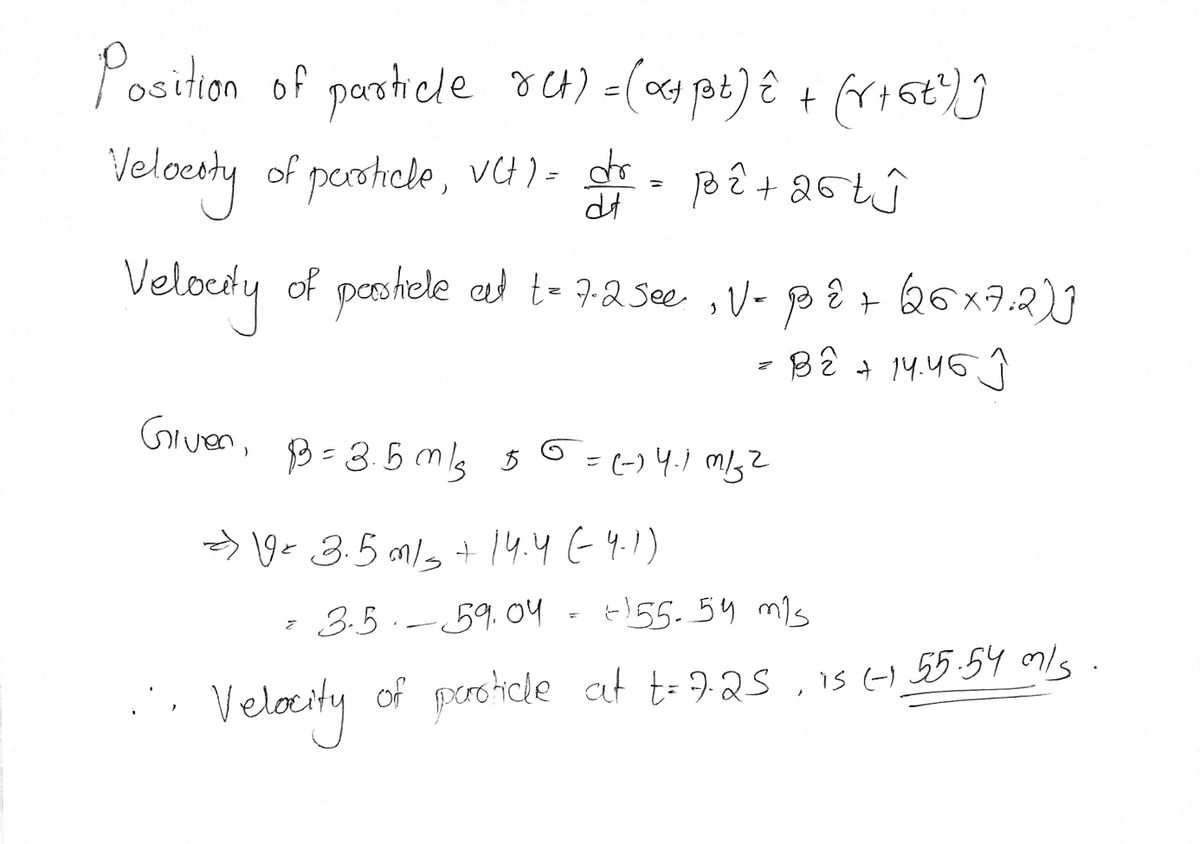 Position of particle r(t) = (α + βt) î + (γ + σt²) ĵ
Velocity of particle, v(t) = dr/dt = β î + 2σt ĵ
Velocity of particle at t = 7.2 sec, V = β î + (2σ × 7.2) ĵ
= β î + 14.4σ ĵ
Given, β = 3.5 m/s & σ = (-) 4.1 m/s²
⇒ V = 3.5 m/s + 14.4 (-4.1)
= 3.5 - 59.04 = (-) 55.54 m/s
∴ Velocity of particle at t = 7.2 S, is (-) 55.54 m/s.